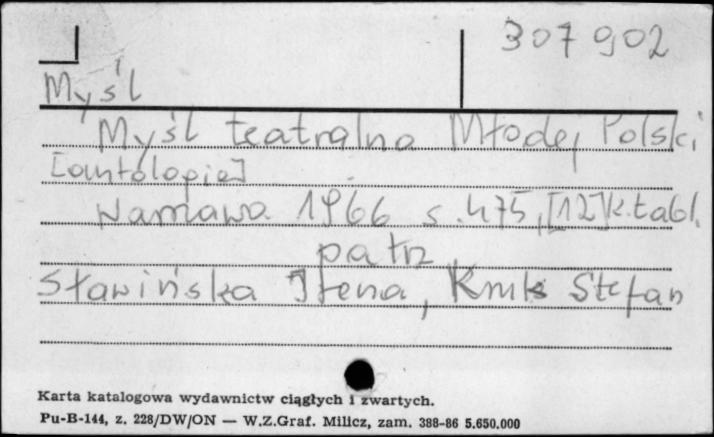 307902
Myśl
Myśl teatralna Młodej Polski
[antologia]
Warszawa 1966 s. 475, [12] k. tabl.
patrz
Sławińska Irena, Kruk Stefan
Karta katalogowa wydawnictw ciągłych i zwartych.
Pu-B-144, z. 228/DW/ON — W.Z.Graf. Milicz, zam. 388-86 5.650.000